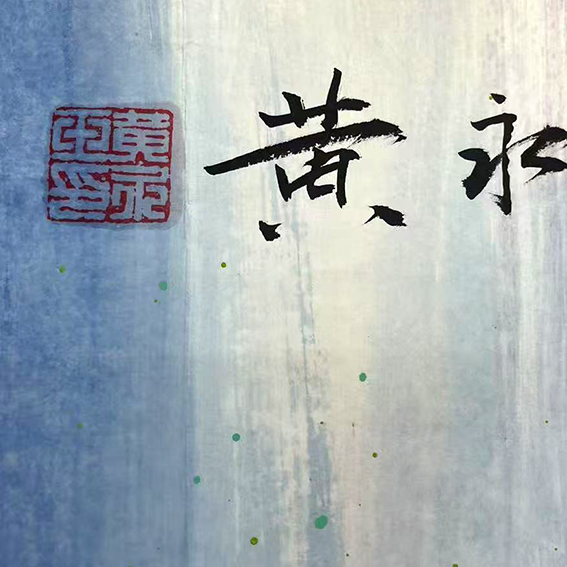 黄永
黄永玉印